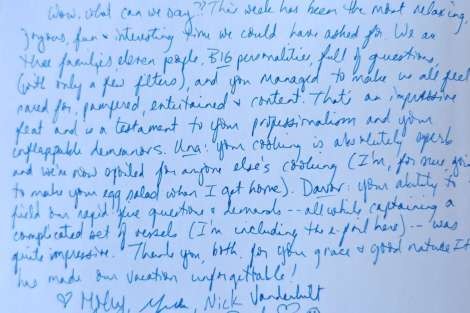 Wow, what can we say?? This week has been the most relaxing,
joyous, fun & interesting time we could have asked for. We as
three families eleven people, BIG personalities, full of questions,
(with only a few filters), and you managed to make us all feel
cared for, pampered, entertained & content. That's an impressive
feat and is a testament to your professionalism and your
unflappable demeanors. Una: your cooking is absolutely superb
and we're now spoiled for anyone else's cooking (I'm, for one, going
to make your egg salad when I get home). Davor: your ability to
field our rapid fire questions & demands -- all while captaining a
complicated set of vessels (I'm including the e-foil here) -- was
quite impressive. Thank you, both, for your grace & good nature. It
has made our vacation unforgettable!
♡ Molly, Nick Vanderbilt